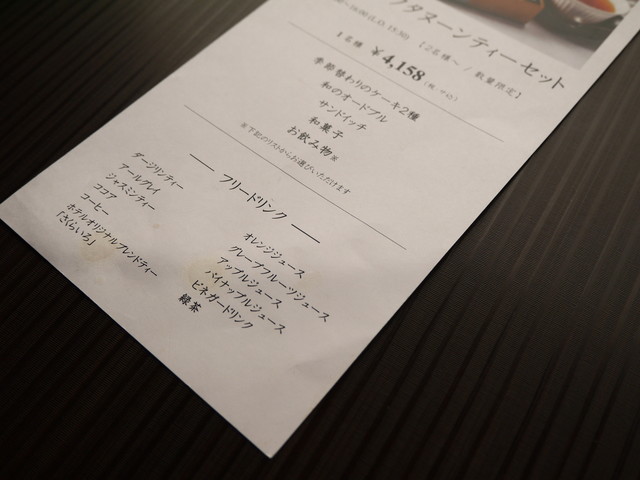 フタヌーンティーセット
18:00 (L.O. 15:30) 【2名様~ / 数量限定】
1名様 ¥4,158 (税・サ込)
季節替わりのケーキ2種
和のオードブル
サンドイッチ
和菓子
お飲み物※
※下記のリストからお選びいただけます
フリードリンク
ダージリンティー
アールグレイ
ジャスミンティー
ココア
コーヒー
ホテルオリジナルブレンドティー
「さくらいろ」
オレンジジュース
グレープフルーツジュース
アップルジュース
パイナップルジュース
ビネガードリンク
緑茶